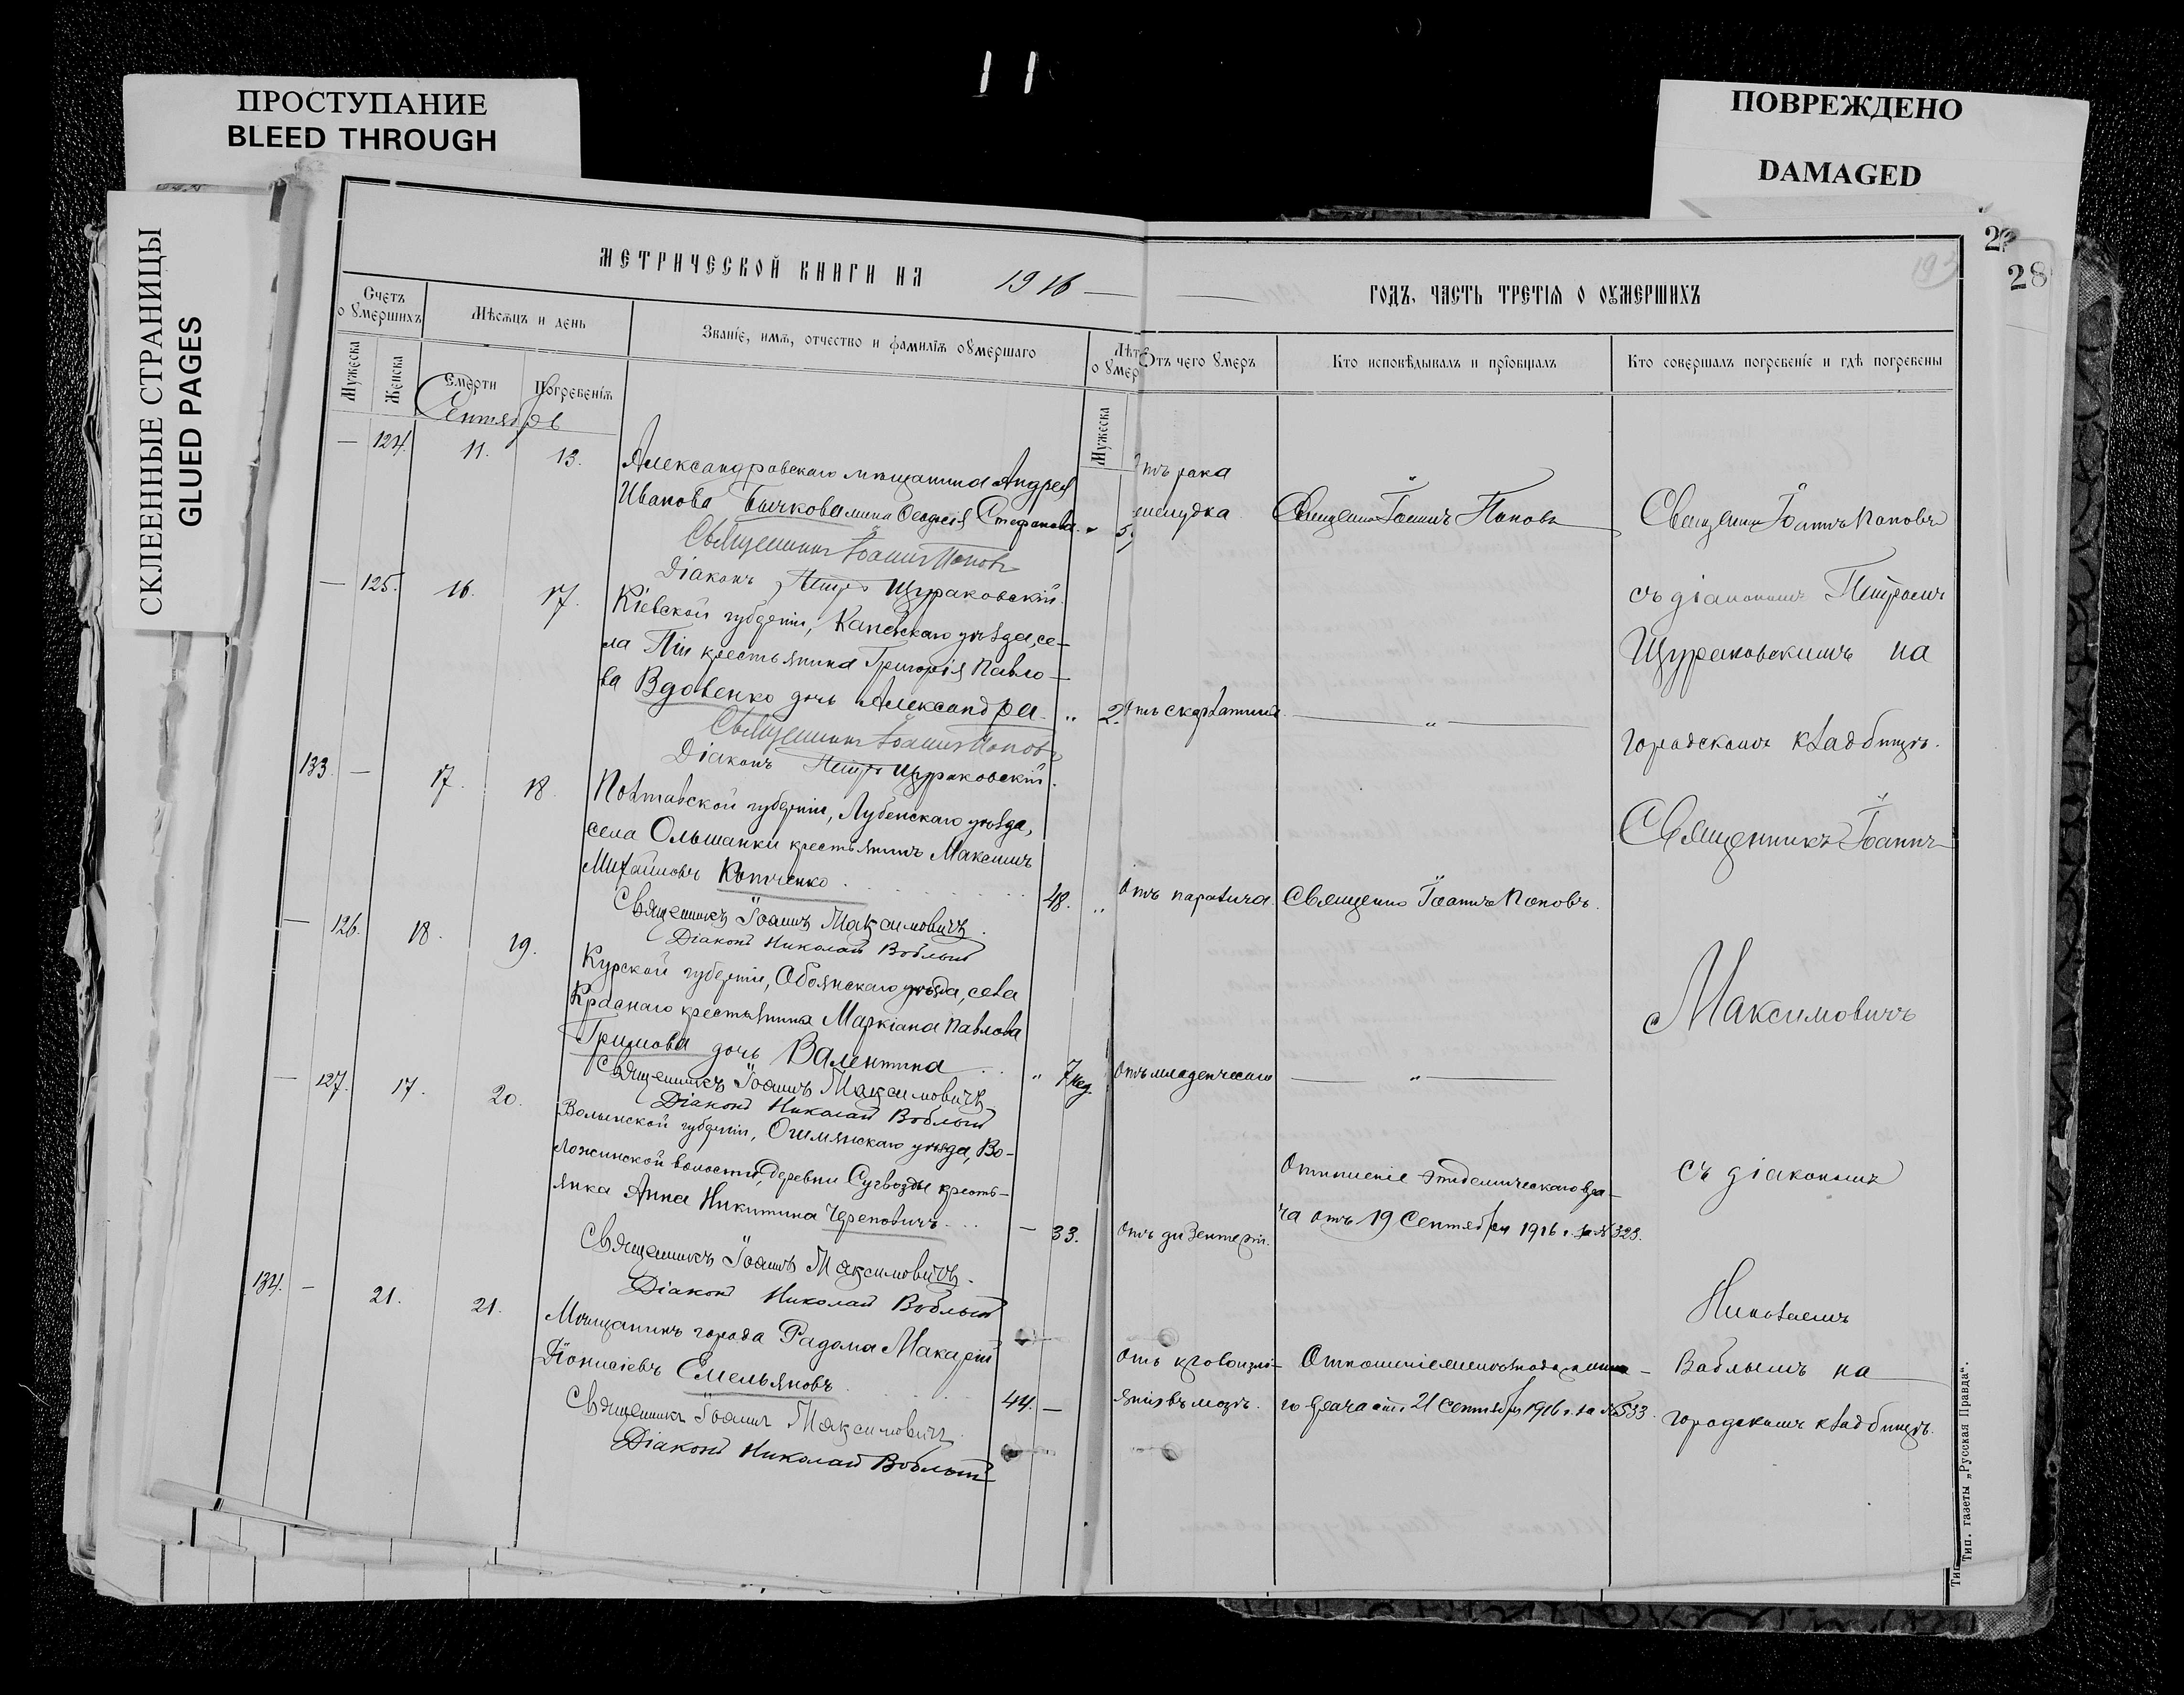 ПРОСТУПАНИЕ
BLEED THROUGH
ПОВРЕЖДЕНО
DAMAGED
СКЛЕЕННЫЕ СТРАНИЦЫ
GLUED PAGES
28
МЕТРИЧЕСКОЙ КНИГИ НА 1916
ГОДЪ, ЧАСТЬ ТРЕТІЯ О ОУМЕРШИХЪ
Счетъ
о умершихъ
Мужеска
Женска
Мѣсяцъ и день
Смерти
Погребенія
Званіе, имя, отчество и фамилія оумершаго
Лѣт
о умер
Мужеска
Отъ чего умеръ
Кто исповѣдывалъ и пріобщалъ
Кто совершалъ погребеніе и гдѣ погребены
Сентябрь
— 124. 11. 13.
Александровскаго мѣщанина Андрея
Иванова Бычкова жена Феодосія Стефанова
отъ рака
желудка
Священ. Іоаннъ Поповъ
Священникъ Іоаннъ Поповъ
Діаконъ Петръ Щураковскій.
— 125. 16. 17.
Кіевской губерніи, Каневскаго уѣзда, се-
ла Піи крестьянина Григорія Павло-
ва Вдовенко дочь Александра „ 2.
отъ скарлатины — „ —
Священникъ Іоаннъ Поповъ
Діаконъ Петръ Щураковскій.
133. — 17. 18
Полтавской губерніи, Лубенскаго уѣзда,
села Ольшанки крестьянинъ Максимъ
Михаиловъ Копченко 48. „
отъ паралича. Священ. Іоаннъ Поповъ.
Священникъ Іоаннъ Максимовичъ.
Діаконъ Николай Воблый
— 126. 18. 19.
Курской губерніи, Обоянскаго уѣзда, села
Краснаго крестьянина Маркіана Павлова
Гримова дочь Валентина „ 7 нед
отъ младенческаго — „ —
Священникъ Іоаннъ Максимовичъ
Діаконъ Николай Воблый
— 127. 17. 20.
Волынской губерніи, Ошмянскаго уѣзда, Во-
ложинской волости, деревни Сугвозды кресть-
янка Анна Никитина Череповичъ — 33.
отъ дизентеріи.
Отношеніе эпидемическаго вра-
ча отъ 19 Сентября 1916 г. за № 328.
Священникъ Іоаннъ Максимовичъ.
Діаконъ Николай Воблый
134. — 21. 21.
Мѣщанинъ города Радома Макарій
Діонисіевъ Емельяновъ 44. —
отъ кровоизлі-
янія въ мозгъ.
го врача отъ 21 Сентября 1916 г. за № 533
Священникъ Іоаннъ Максимовичъ
Діаконъ Николай Воблый
Священ. Іоаннъ Поповъ
съ діакономъ Петромъ
Щураковскимъ на
городскомъ кладбищѣ.
Священникъ Іоаннъ
Максимовичъ
съ діакономъ
Николаемъ
Воблымъ на
городскомъ кладбищѣ.
Тип. газеты „Русская Правда“.